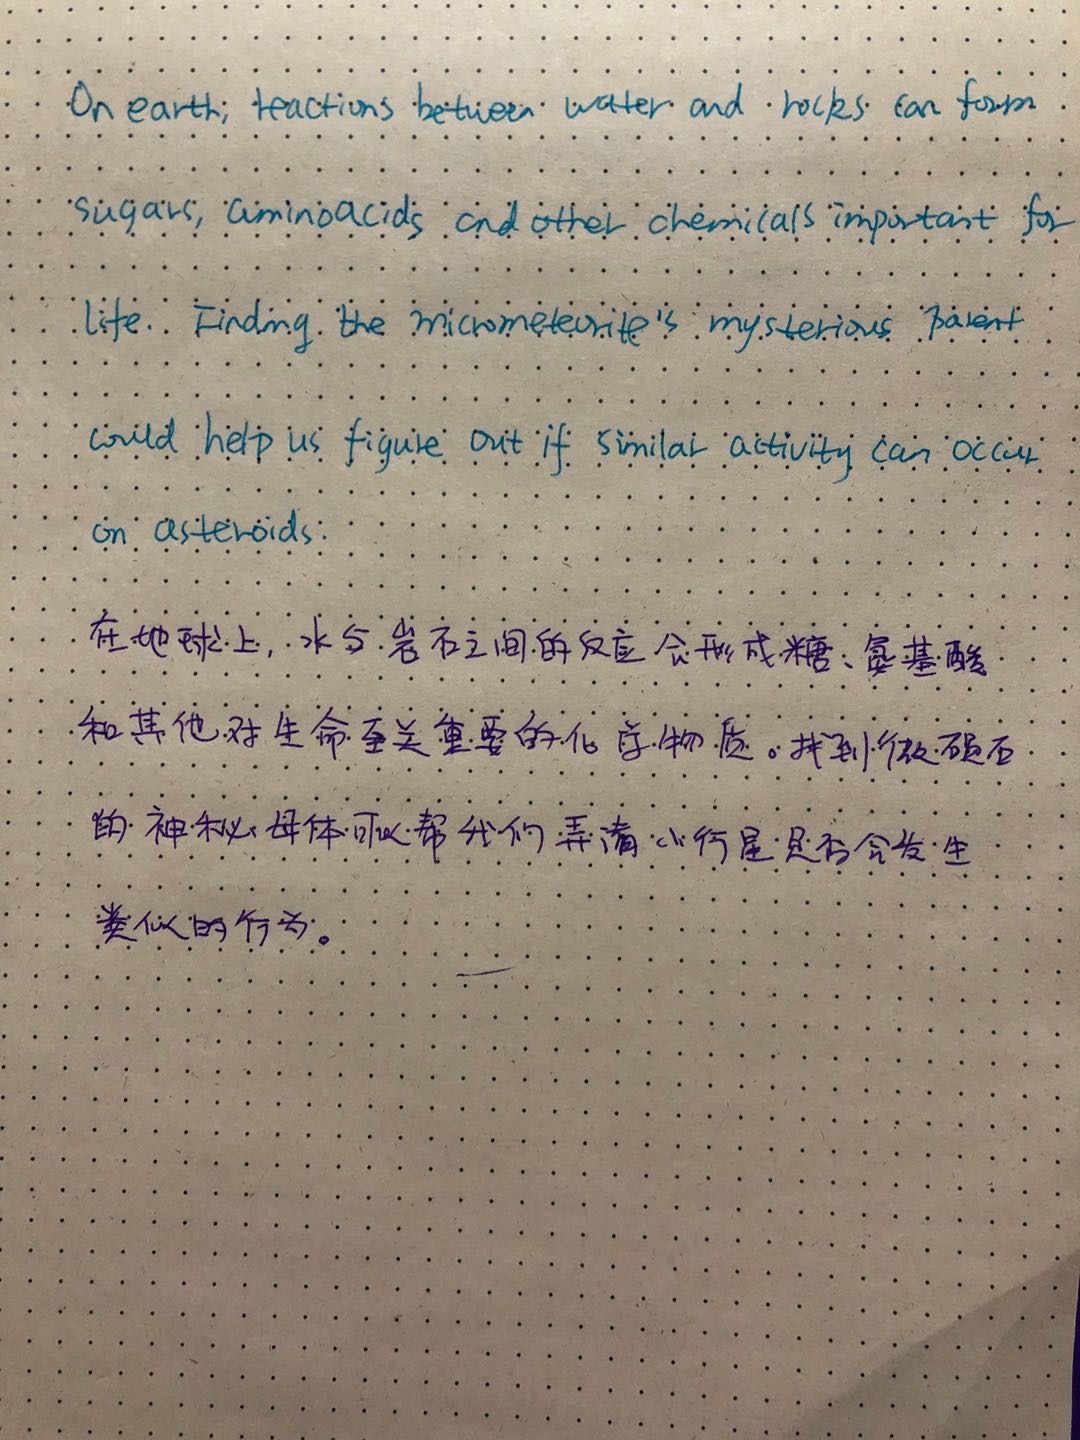 On earth, reactions between water and rocks can form
sugars, aminoacids and other chemicals important for
life. Finding the micrometeorite's mysterious parent
could help us figure out if similar activity can occur
on asteroids.
在地球上，水与岩石之间的反应会形成糖、氨基酸
和其他对生命至关重要的化学物质。找到微陨石
的神秘母体可以帮我们弄清小行星是否会发生
类似的行为。